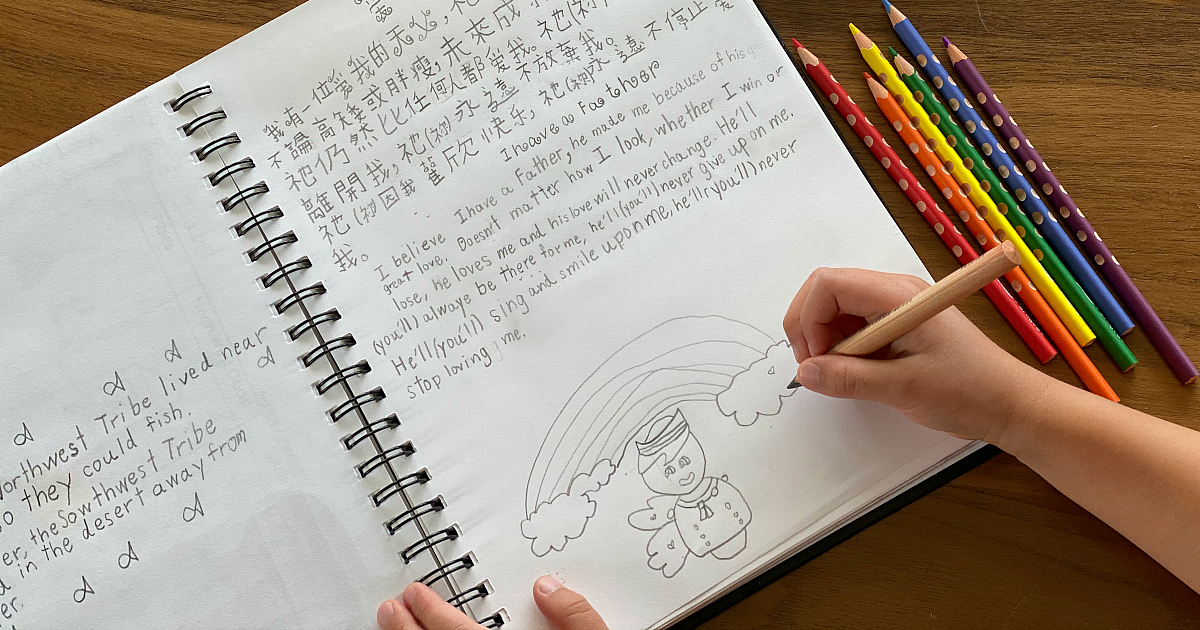 orthwest Tribe lived near
o they could fish.
er, the Sowthwest Tribe
d in the desert away from
er.
我有一位爱我的天父,祂
不論高矮或胖瘦,未來成
祂仍然比任何人都爱我。祂(祢)
離開我,祂(祢)永遠不放棄我。
祂(祢)因我 欣快乐,祂(祢)永遠不停止爱
我。
I have a Father
I believe I have a Father, he made me because of his
great love. Doesn't matter how I look, whether I win or
lose, he loves me and his love will never change. He'll
(you'll) alwaye be there for me, he'll (you'll) never give up on me.
He'll (you'll) sing and smile upon me, he'll (you'll) never
stop loving me.